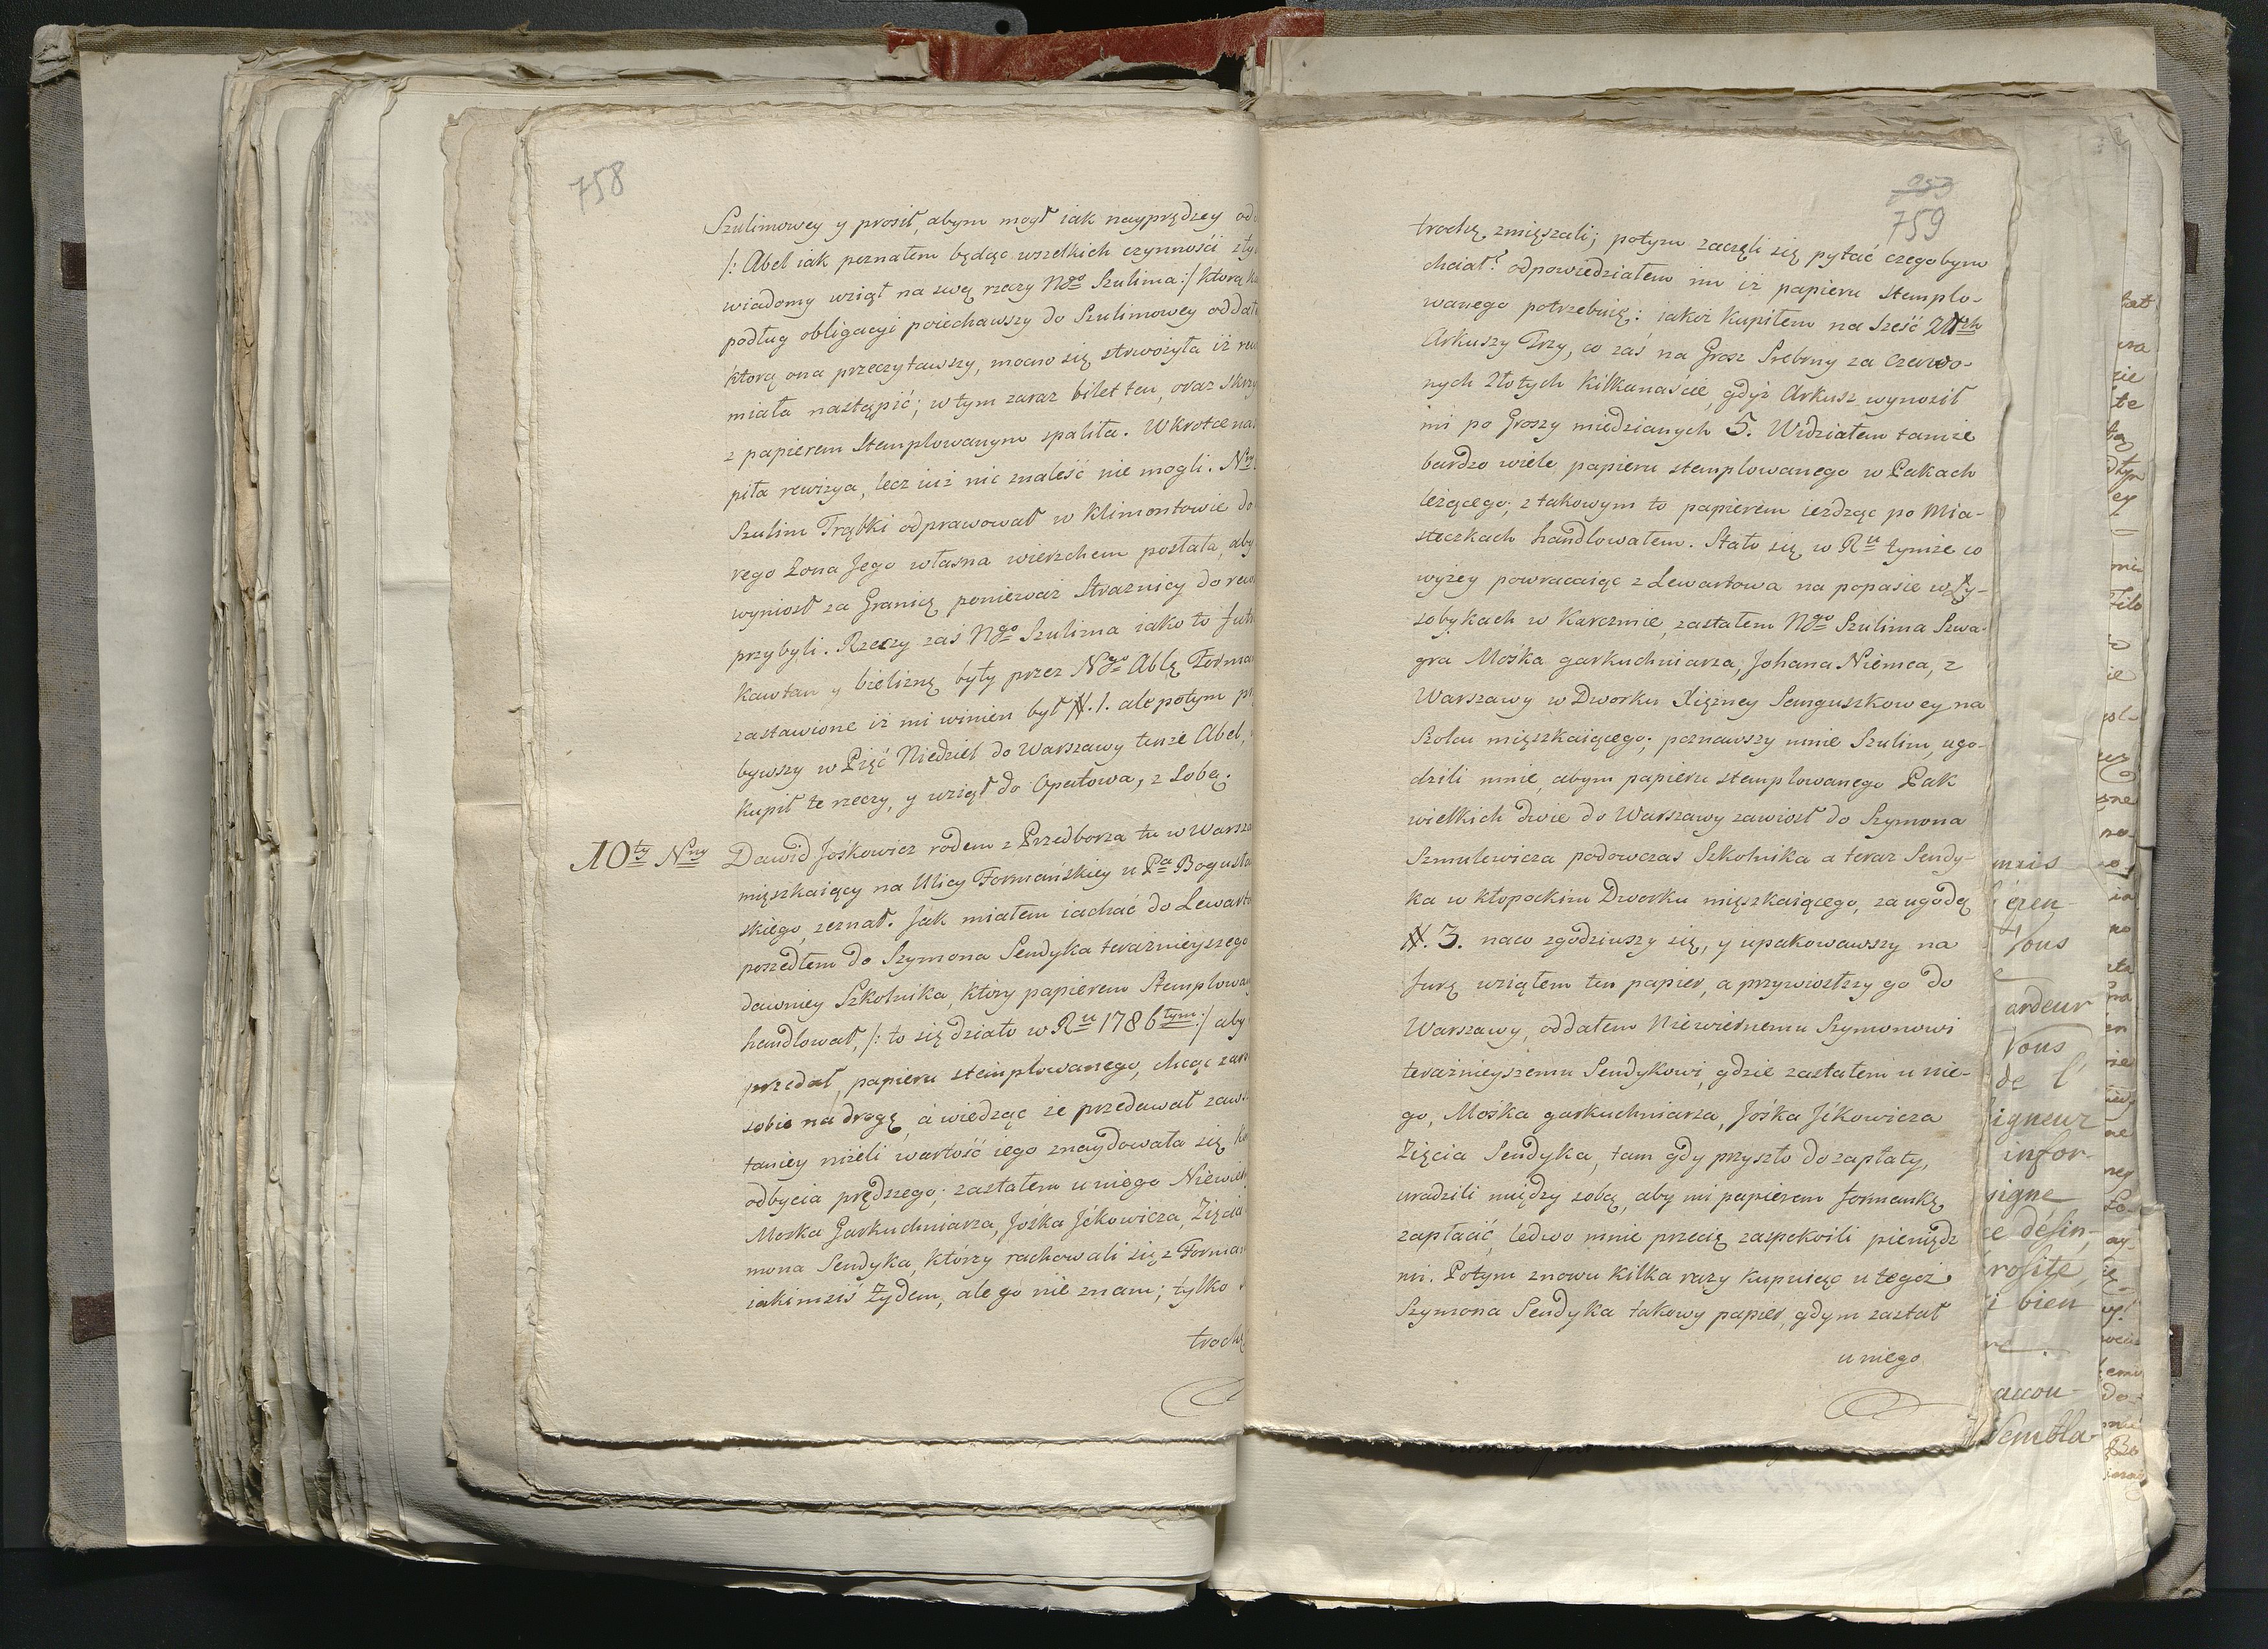 758
Szulimowey y prosił, abym mogł iak nayprędzey od
/: Abel iak poznałem będąc wszelkich czynności z ty
wiadomy wziął na swę rzeczy Ngo Szulima :/ ktorą
podług obligacyi poiechawszy do Szulimowey oddał
ktorą ona przeczytawszy, mocno się strwożyła iż rew
miała nastąpić; w tym zaraz bilet ten, oraz skrzy
z papierem Stemplowanym spaliła. Wkrotce nas
piła rewizya, lecz iuż nic znaleść nie mogli. Nny
Szulim Trąbki odprawował w Klimontowie do
rego Żona Jego własna wierzchem posłała, aby
wyniosł za Granicę ponieważ Strażnicy do rew
przybyli. Rzeczy zaś Ngo Szulima iako to fut
Kawtan y bieliznę były przez Ngo Ablę Forma
zastawione iż mi winien był #. 1. ale potym pr
bywszy w Pięć Niedziel do Warszawy tenże Abel,
Kupił te rzeczy, y wziął do Opatowa, z Sobą.
10ty Nny Dawid Jośkowicz rodem z Przedborza tu w Warsza
mięszkaiący na Ulicy Formańskiey u Pa Bogusła
skiego, zeznał. Jak miałem iachać do Lewarto
poszedłem do Szymona Sendyka teraźnieyszego
dawniey Szkolnika, ktory papierem Stemplowa
handlował, /: to się działo w Ru 1786tym :/ aby
przedał, papieru stemplowanego, chcąc zar
sobie na drogę, a wiedząc że przedawał zaw
taniey niżeli wartość iego znaydowała się,
odbycia prędszego; zastałem u niego Niewier
Moska Garkuchniarza, Jośka Jćkowicza, Zięcia
mona Sendyka, którzy rachowali się z Forma
iakimsiś Żydem, ale go nie znam; tylko
trochę
953
759
trochę zmięszali; potym zaczęli się pytać czegobym
chciał? odpowiedziałem im iż papieru stemplo-
wanego potrzebuię: iakoż kupiłem na Sześć Złłch
Arkuszy Trzy, co zaś na Grosz Srebrny za Czerwo-
nych Złotych Kilkanaście, gdyż Arkusz wynosił
mi po Groszy miedzianych 5. Widziałem tamże
bardzo wiele papieru stemplowanego w Pakach
leżącego; z takowym to papierem ieżdżąc po Mia-
steczkach handlowałem. Stało się w Ru tymże co
wyżey powracaiąc z Lewartowa na popasie w Ży-
sobykach w Karczmie, zastałem Ngo Szulima Szwa-
gra Mośka garkuchniarza, Johana Niemca, z
Warszawy w Dworku Xiężney Sanguszkowey na
Szolcu mięszkaiącego; poznawszy mnie Szulim, ugo-
dzili mnie, abym papieru stemplowanego Pak
wielkich dwie do Warszawy zawiozł do Szymona
Szmulewicza podowczas Szkolnika a teraz Sendy-
ka w kłopockim Dworku mięszkaiącego, za ugodę
#. 3. naco zgodziwszy się, y upakowawszy na
furę wziąłem ten papier, a przywiozłszy go do
Warszawy, oddałem Niewiernemu Szymonowi
teraźnieyszemu Sendykowi, gdzie zastałem u nie-
go, Mośka garkuchniarza, Jośka Jćkowicza
Zięcia Sendyka, tam gdy przyszło do zapłaty,
uradzili między sobą, aby mi papierem formankę
zapłacić, ledwo mnie przecię zaspokoili pieniądz
mi. Potym znowu Kilka razy kupuiąc u tegoż
Szymona Sendyka takowy papier, gdym zastał
u niego
ardeur
Vous
de l'
infor-
signe
ce désin-
bien
accou-